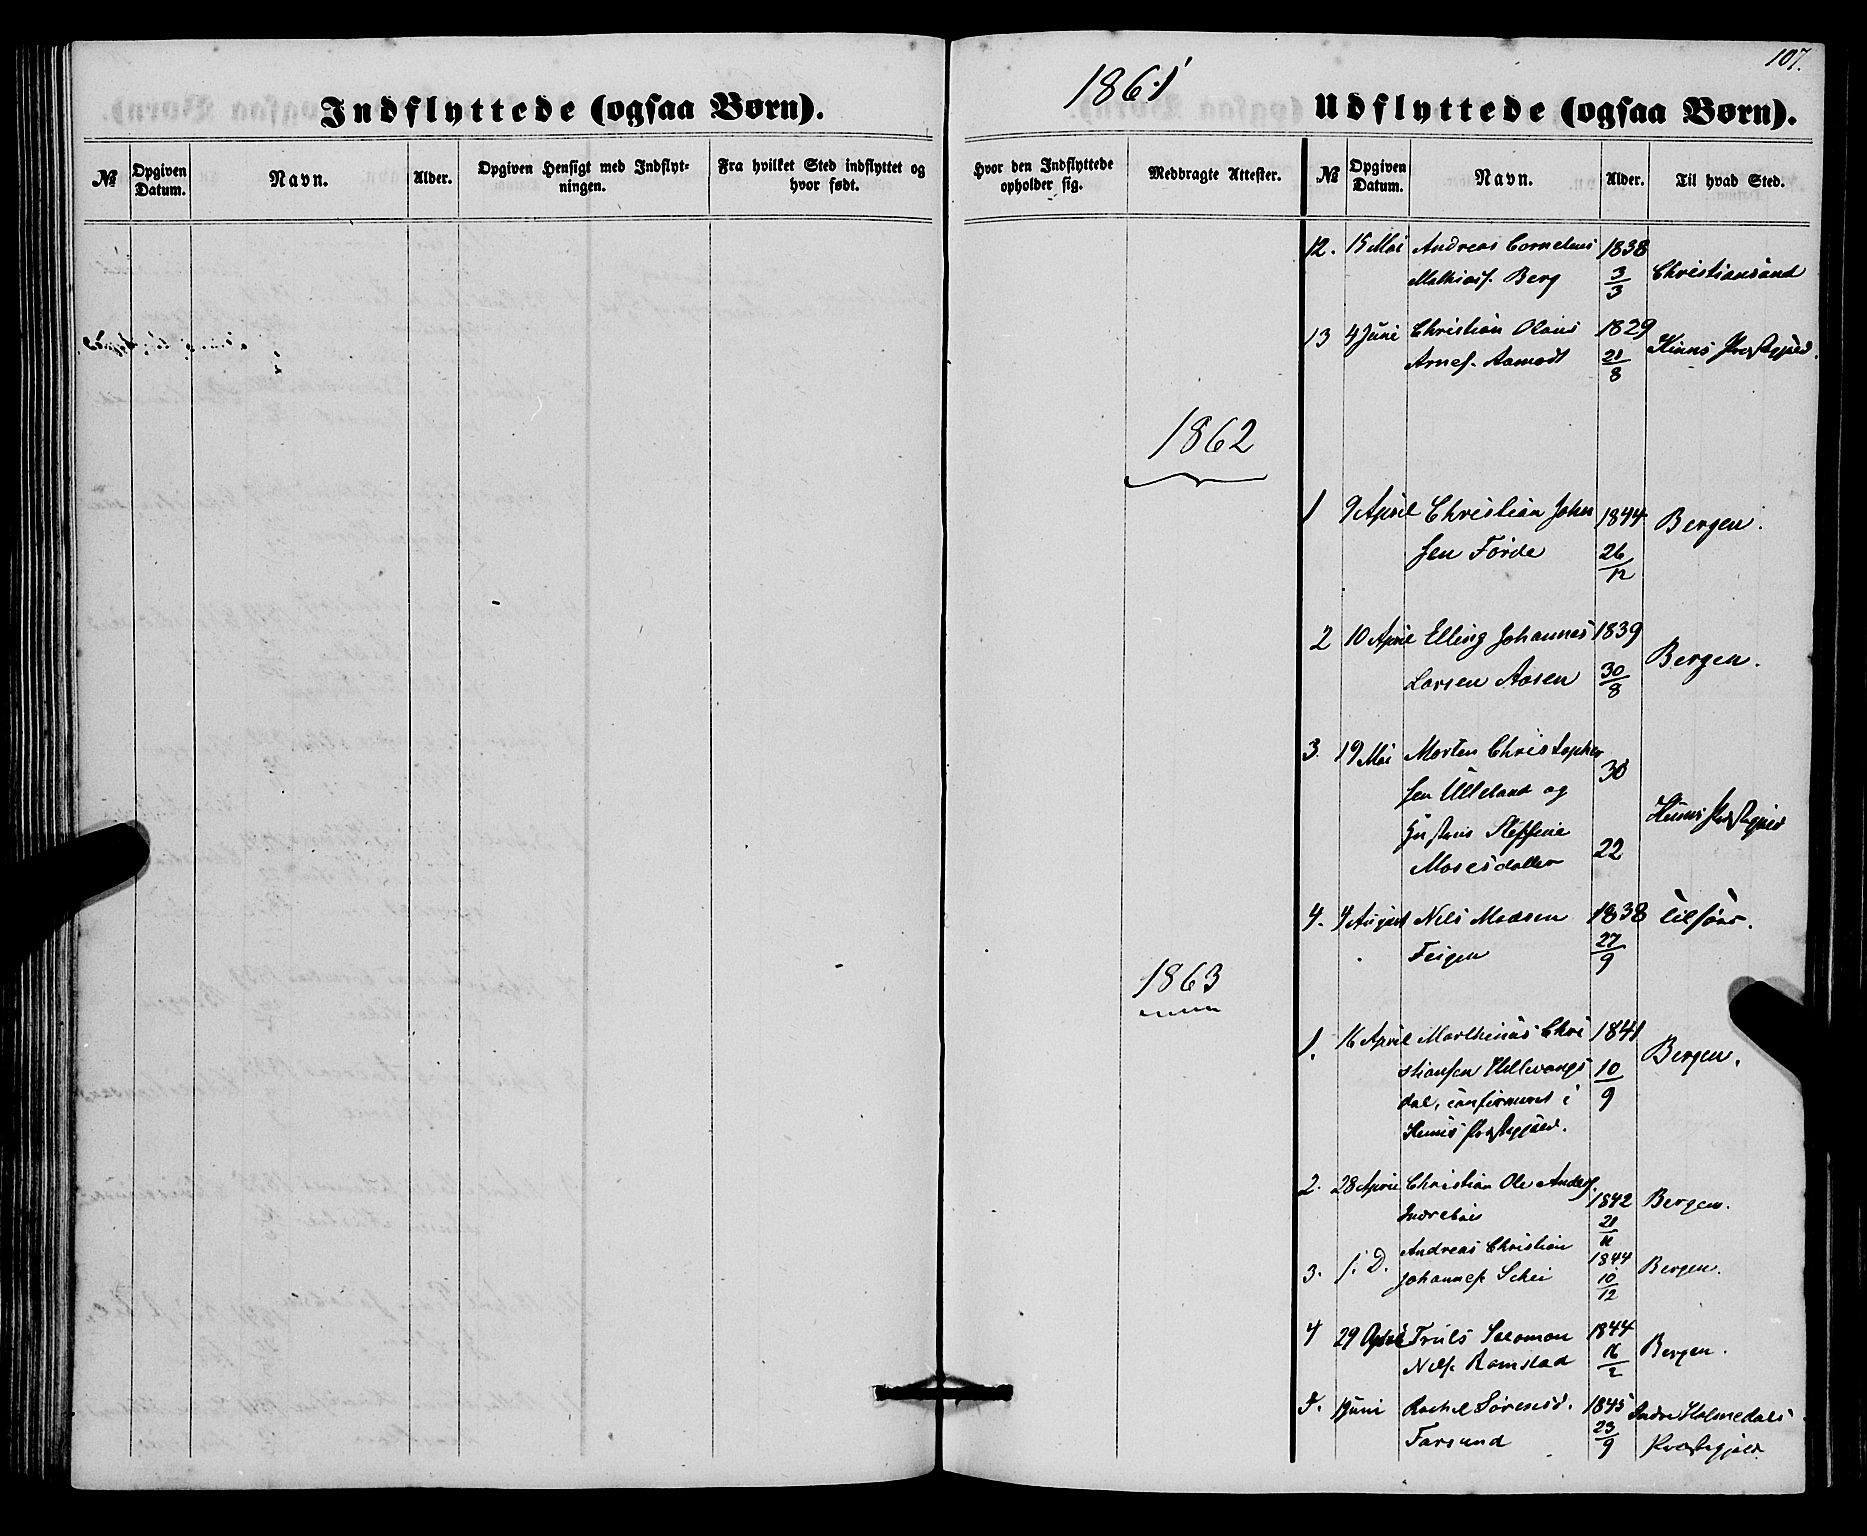 107.
1861
Indflyttede (ogsaa Børn).
Udflyttede (ogsaa Børn).
№ Opgiven Datum. Navn. Alder. Opgiven Hensigt med Indflytningen. Fra hvilket Sted indflyttet og hvor født.
Hvor den Indflyttede opholder sig. Medbragte Attester. № Opgiven Datum. Navn. Alder. Til hvad Sted.
12. 15 Mai Andreas Cornelius 1838
Mathiasf. Berg 3/3 Christiansund
13 4 Juni Christian Olaus 1829
Arnes. Aamodt 21/8 Kinns Præstegjeld.
1862
1 9 April Christian John 1844 Bergen.
sen Förde 26/12
2 10 April Elling Johannes 1839
Larsen Aasen 30/8 Bergen.
3. 19 Mai Morten Christopher
sen Ulleland og 30
Steffine Kinns Præstegjeld
Mosesdatter 22
4. 4 August Nils Madsen 1838
Feigen 27/9
1863
1. 16 April Marthinus Chri 1841
stiansen 10/9 Bergen.
dal, confirmeret i
Kinns Præstegjeld.
2. 28 April Christian Ole Andersf.
Indreböe 1842 21/11 Bergen.
3. s. D. Andreas Christian 1844
Johannesf. Schei 10/12 Bergen.
4 29 April Truls Salomon 1844
Nilsf. Ramstad 16/2 Bergen.
5. Juni Rachel Sörensd. 1845 Indre Holmedals
Farsund 23/9 Præstegjeld.